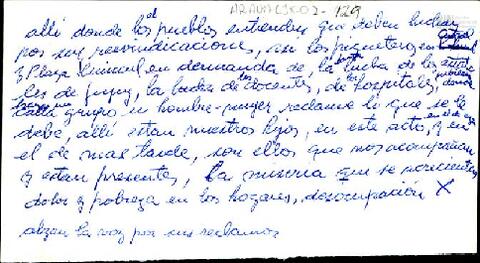 ARAUALSR02-129
allí donde los pueblos entienden que deben luchar
por sus reivindicaciones, son los piqueteros en
y Plaza en demanda de, la lucha de los
les de Jujuy, la lucha de los docentes, de los hospitales, donde
cada grupo u hombre-mujer reclame lo que se le
debe, allí están nuestros hijos, en este acto, y en
el de mas tarde, son ellos que nos acompañan
y están presentes, la miseria que se
dolor y pobreza en los hogares, desocupación X
alzan la voz por sus reclamos